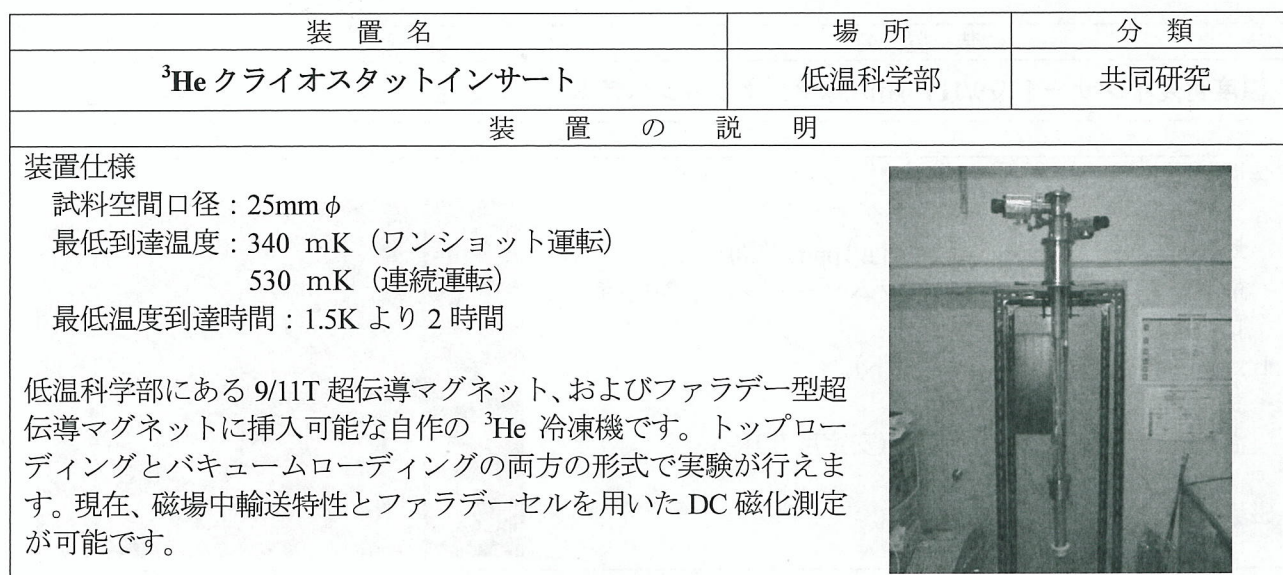 装 置 名
場 所
分 類
³He クライオスタットインサート
低温科学部
共同研究
装 置 の 説 明
装置仕様
試料空間口径：25mmφ
最低到達温度：340 mK（ワンショット運転）
530 mK（連続運転）
最低温度到達時間：1.5K より 2 時間
低温科学部にある 9/11T 超伝導マグネット、およびファラデー型超
伝導マグネットに挿入可能な自作の ³He 冷凍機です。トップロー
ディングとバキュームローディングの両方の形式で実験が行えま
す。現在、磁場中輸送特性とファラデーセルを用いた DC 磁化測定
が可能です。